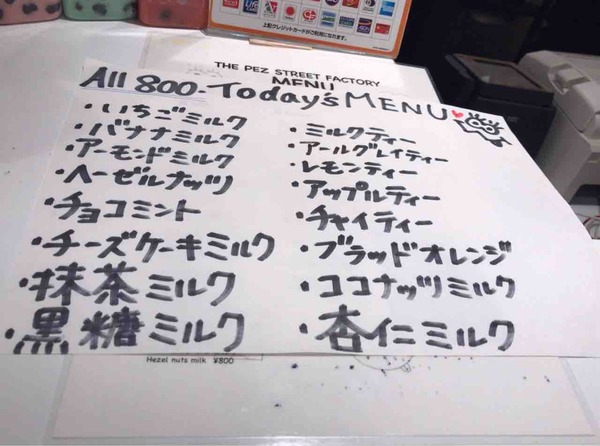 上記クレジットカードがご利用になれます。
THE PEZ STREET FACTORY
MENU
All 800- Today's MENU
・いちごミルク
・バナナミルク
・アーモンドミルク
・ヘーゼルナッツ
・チョコミント
・チーズケーキミルク
・抹茶ミルク
・黒糖ミルク
・ミルクティー
・アールグレイティー
・レモンティー
・アップルティー
・チャイティー
・ブラッドオレンジ
・ココナッツミルク
・杏仁ミルク
Hezel nuts milk ¥800